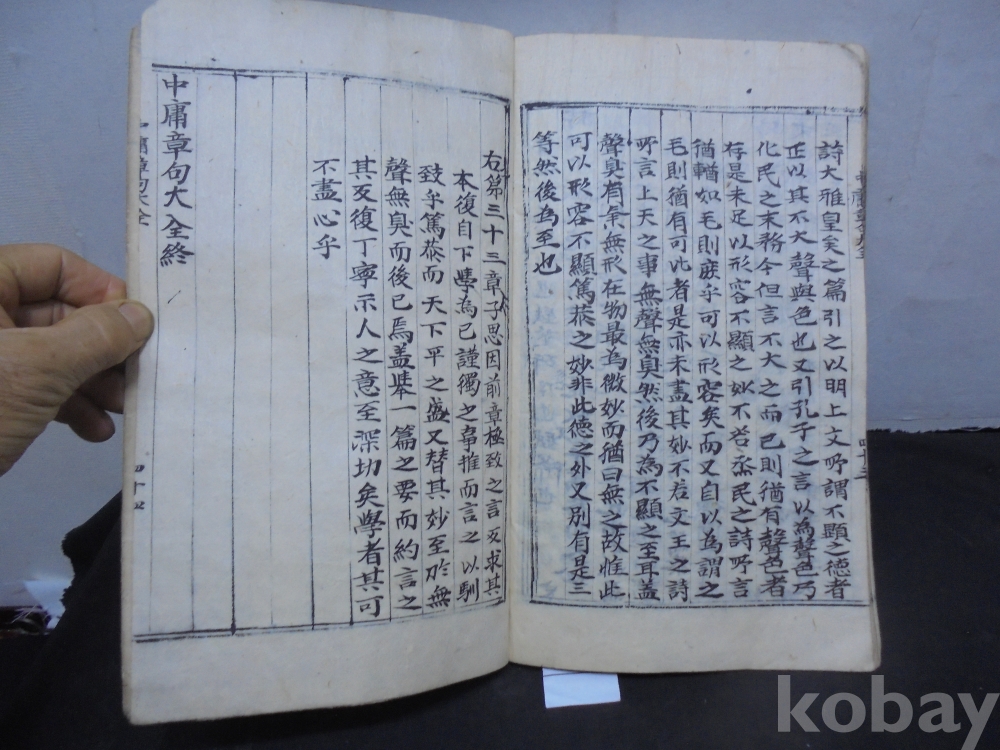 詩大雅皇矣之篇引之以明上文所謂不顯之德者
正以其不大聲與色也又引孔子之言以為聲色乃
化民之末務今但言不大之而已則猶有聲色者
存是未足以形容不顯之妙不若烝民之詩所言
德輶如毛則庶乎可以形容矣而又自以為謂之
毛則猶有可比者是亦未盡其妙不若文王之詩
所言上天之事無聲無臭然後乃為不顯之至耳盖
聲臭有氣無形在物最為微妙而猶曰無之故惟此
可以形容不顯篤恭之妙非此德之外又別有是三
等然後為至也
右第三十三章子思因前章極致之言反求其
本復自下學為己謹獨之事推而言之以馴
致乎篤恭而天下平之盛又替其妙至於無
聲無臭而後已焉盖舉一篇之要而約言之
其反復丁寧示人之意至深切矣學者其可
不盡心乎
中庸章句大全終
庸章句大全
四十四
kobay